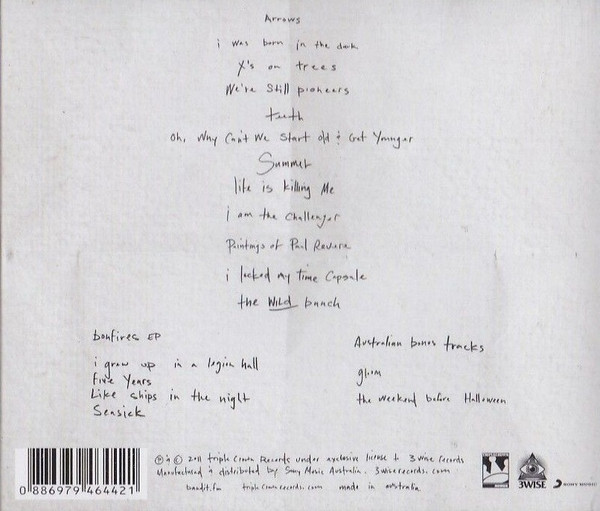 Arrows
i was born in the dark
X's on trees
We're Still pioneers
teeth
Oh, Why Can't We Start Old & Get Younger
Summer
life is killing Me
i am the Challenger
Paintings of Paul Revere
i locked my Time Capsule
the Wild bunch
bonfires EP
i grew up in a legion hall
five Years
Like ships in the night
Seasick
Australian bonus tracks
gloom
the weekend before Halloween
℗ & © 2011 triple Crown Records under exclusive license to 3 wise records
Manufactured & distributed by Sony Music Australia. 3wiserecords.com
bandit.fm triplecrownrecords.com made in australia
0 886979 464421
3WISE
SONY MUSIC